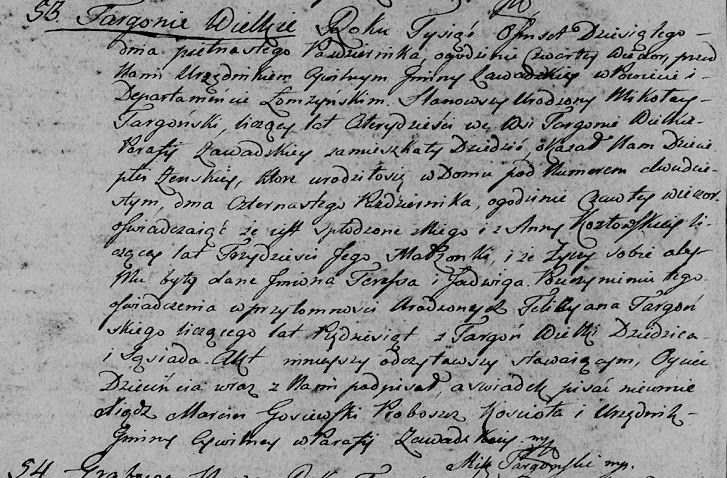 53. Targonie Wielkie Roku Tysiąc Ośmset Dziesiątego
dnia piętnastego Października, o godzinie czwartey Wieczor, przed
Nami Urzędnikiem Cywilnym Gminy Zawadzkiey w Powiecie i
Departamencie Łomżynskim. Stanowszy Urodzony Mikołay
Targoński, liczący lat Czterydzieści we Wsi Targonie Wielkie
Parafii Zawadzkiey zamieszkały Dziedzic, okazał Nam Dziecie
płci Żenskiey, które urodziło się w Domu pod Numerem dwudzie-
stym, dnia Czternastego Października, o godzinie Czwartey wieczor
oświadczaiąc że iest spłodzone z niego i z Anny Kozłowskiey li-
czącey lat Trzydzieści Jego Małżonki, i że życzy sobie aby
Mu były dane Jmiona Teressa i Jadwiga. Po uczynieniu tego
oświadczenia w przytomności Urodzonych Felicyana Targoń-
skiego liczącego lat Pędziesiąt z Targoń Wielki Dziedzica
i Sąsiada. Akt ninieyszy odczytawszy stawaiącym, Oyciec
Dziecięcia wraz z Nami podpisał, a świadek pisać nieumie
Xiądz Marcin Gosiewski Proboszcz Kościoła i Urzędnik
Gminy Cywilney w Parafij Zawadzkiey mp
Mik Targonski mp.
54.